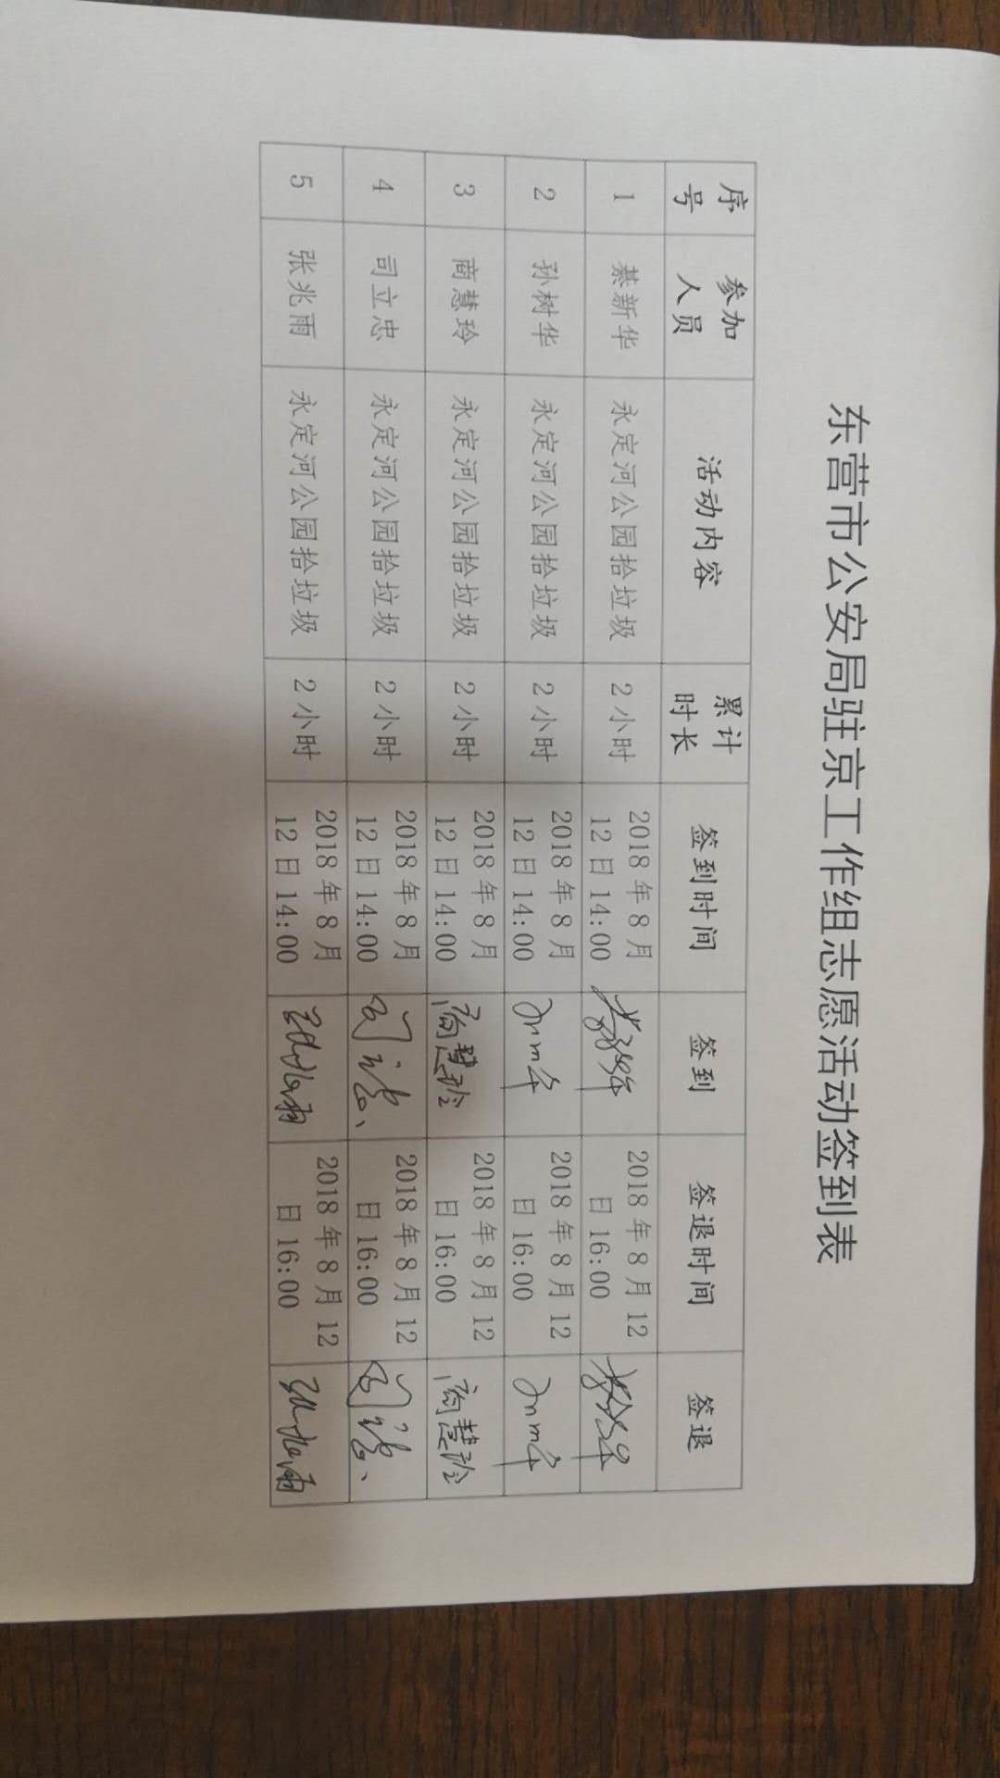 东营市公安局驻京工作组志愿活动签到表
序号 参加人员 活动内容 累计时长 签到时间 签到 签退时间 签退
1 綦新华 永定河公园拾垃圾 2小时 2018年8月12日14:00 2018年8月12日16:00
2 孙树华 永定河公园拾垃圾 2小时 2018年8月12日14:00 2018年8月12日16:00
3 商慧玲 永定河公园拾垃圾 2小时 2018年8月12日14:00 商慧玲 2018年8月12日16:00 商慧玲
4 司立忠 永定河公园拾垃圾 2小时 2018年8月12日14:00 2018年8月12日16:00
5 张兆雨 永定河公园拾垃圾 2小时 2018年8月12日14:00 张兆雨 2018年8月12日16:00 张兆雨